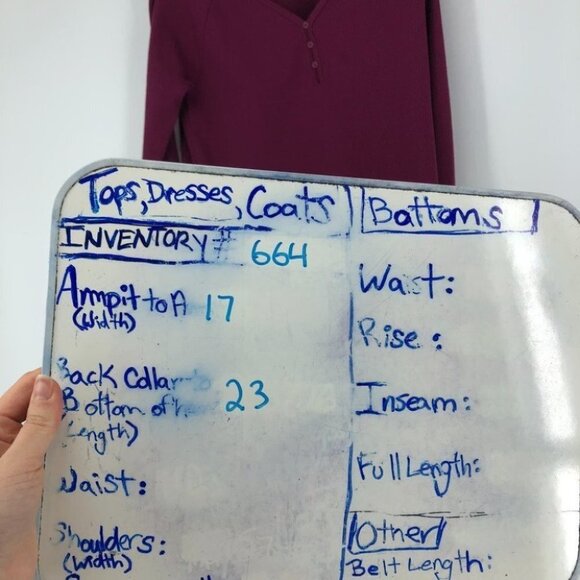 Tops, Dresses, Coats
INVENTORY # 664
Armpit to A 17
(Width)
Back Collar
Bottom of 23
Length)
Waist:
Shoulders:
(Width)
Bottoms
Waist:
Rise:
Inseam:
Full Length:
Other
Belt Length: